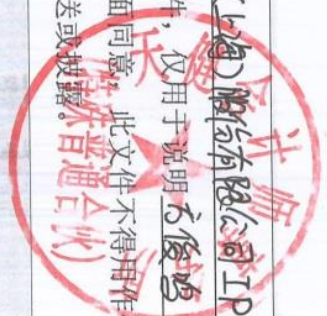 (上海)股份有限公司IP
件，仅用于说明
面同意，此文件不得用作
送或披露。
天健会计师
(特殊普通合伙)